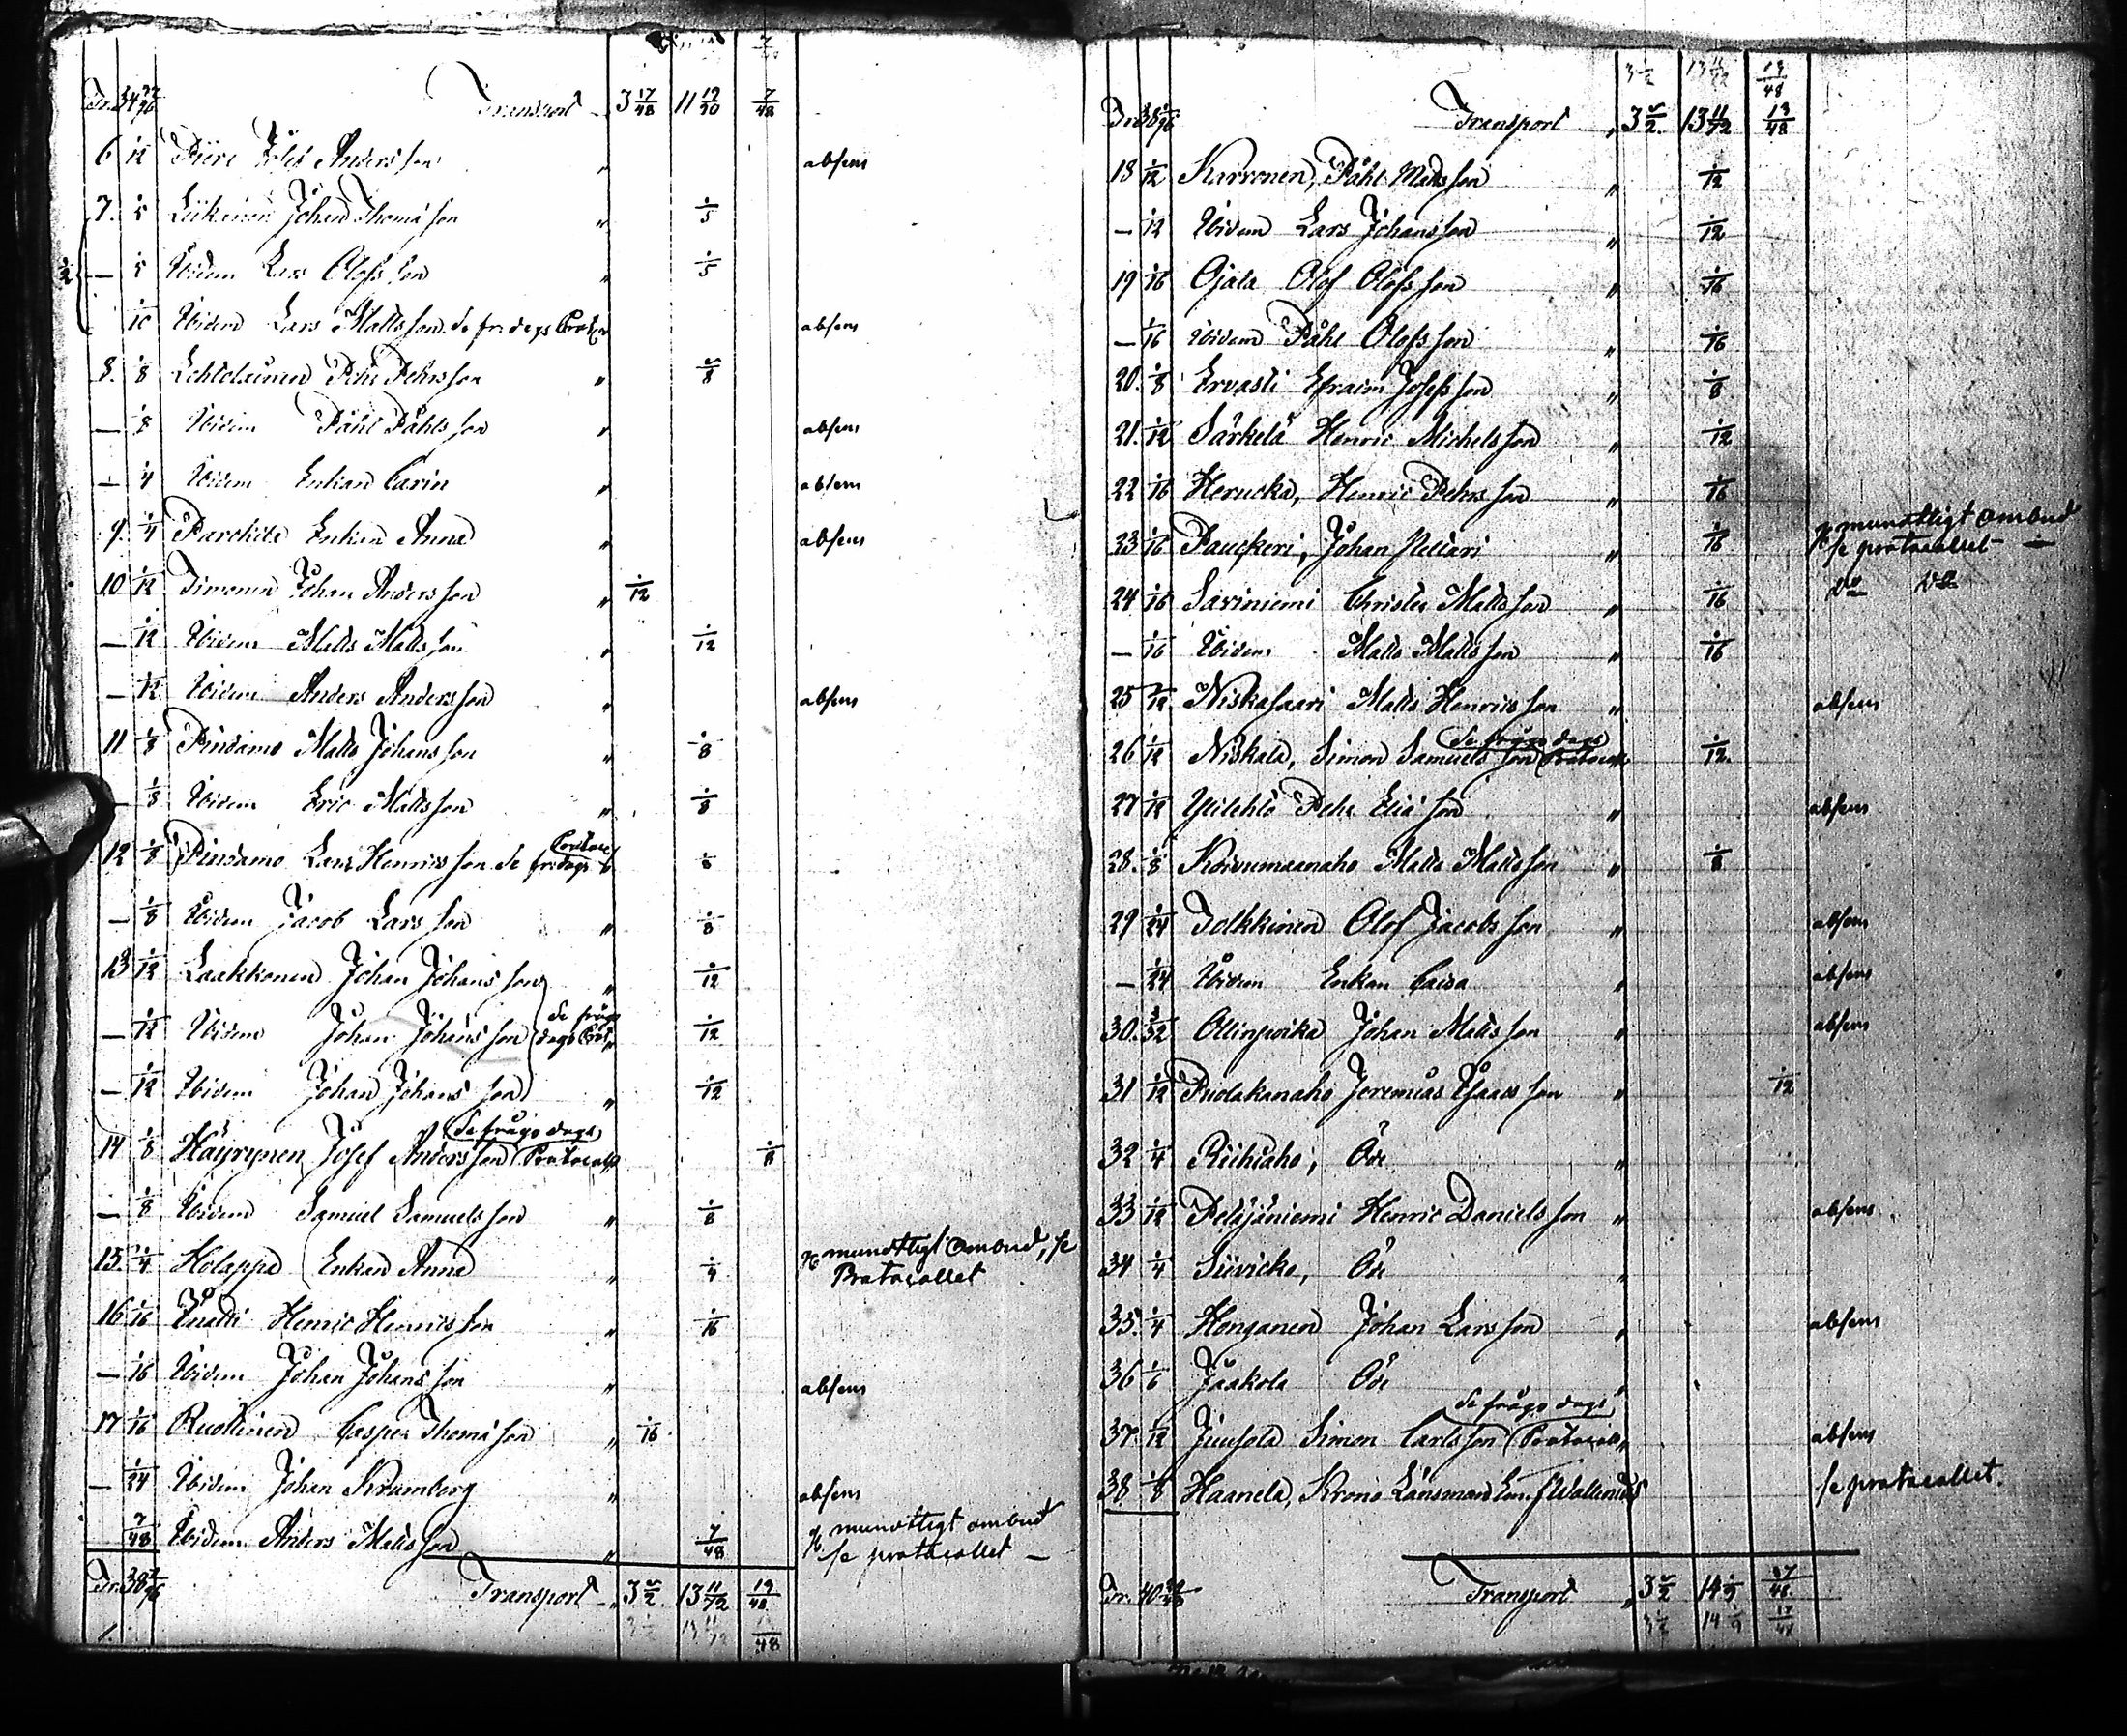 Transport " 3 17/48 11 19/90 7/48
6 1/12 Piiri Josef Andersson " absens
7. 1/5 Liikanen Johan Thomasson " 1/5
1/2 — 1/5 Ibidem Lars Olofsson " 1/5
1/10 Ibidem Lars Mattsson. Se fr. dags Protoc. absens
8. 1/8 Lehtolainen Pehr Pehrsson " 1/8
— 1/8 Ibidem Påhl Påhlsson " absens
— 1/4 Ibidem Enkan Carin " absens
9. 1/4 Enkan Anna " absens
10 1/12 Timonen Johan Andersson " 1/12
— 1/12 Ibidem Matts Mattsson " 1/12
— 1/12 Ibidem Anders Andersson " absens
11 1/8 Pindamo Matts Johansson " 1/8
— 1/8 Ibidem Eric Mattsson " 1/8
Protoc
12 1/8 Pindamo Lars Henricsson Se fr. dags 1/8
— 1/8 Ibidem Jacob Larsson " 1/8
13 1/12 Laakkonen Johan Johansson " 1/12
Se frågo
— 1/12 Ibidem Johan Johansson dags Prot. " 1/12
— 1/12 Ibidem Johan Johansson " 1/12
Se frågo dags
14 1/8 Häyrynen Josef Andersson Protocoll 1/8
— 1/8 Ibidem Samuel Samuelsson " 1/8
15. 1/4 Holappa Enkan Anna " 1/4 mundtligt ombud, se
Protocollet
16 1/16 Henric Henricsson " 1/16
— 1/16 Ibidem Johan Johansson " absens
17 1/16 Ruottinen Casper Thomasson " 1/16
— 1/24 Ibidem Johan Kramberg " absens
7/48 Ibidem Anders Mattsson " 7/48 mundtligt ombud
se protocollet —
Transport " 3 1/2. 13 11/72 13/48
3 1/2 13 11/72 13/48
3 1/2 13 11/72 13/48
Transport " 3 1/2. 13 11/72 13/48
18 1/12 Karvonen, Påhl Mattsson " 1/12
— 1/12 Ibidem Lars Johansson " 1/12
19 1/16 Ojala Olof Olofsson " 1/16
— 1/16 Ibidem Påhl Olofsson " 1/16
20. 1/8 Ervasti Efraim Josefsson " 1/8
21. 1/12 Särkelä Henric Michelsson " 1/12
22 1/16 Herucka, Henric Pehrsson " 1/16
mundtligt ombud
23 1/16 Pauckeri, Johan " 1/16 se protocollet —
24 1/16 Saviniemi Christer Mattsson " 1/16 do do
— 1/16 Ibidem Matts Mattsson " 1/16
25 1/12 Niskasaari Matts Henricsson " absens
Se frågo dags
26 1/12 Niskala, Simon Samuelsson Protocoll 1/12.
27 1/12 Ylilehto Pehr Eliasson " absens
28. 1/8 Koivumaanaho Matts Mattsson " 1/8
29 1/24 Tolkkinen Olof Jacobsson " absens
— 1/24 Ibidem Enkan Caisa " absens
30. 3/32 Ollinvoika Johan Mattsson " absens
31 1/12 Pudakanaho Jeremias Isaacsson " 1/12
32 1/4 Riihiaho, Öde "
33 1/12 Petäjäniemi Henric Danielsson " absens
34 1/4 Siivicko, Öde "
35. 1/4 Honganen Johan Larsson " absens
36 1/6 Jaakola Öde "
Se frågo dags
37. 1/12 Juusola Simon Carlsson Protocoll " absens
38. 1/8 Haanela, Krono Länsman Em. Wallenius se protocollet.
Transport " 3 1/2 14 1/9 17/48.
3 1/2 14 1/9 17/48